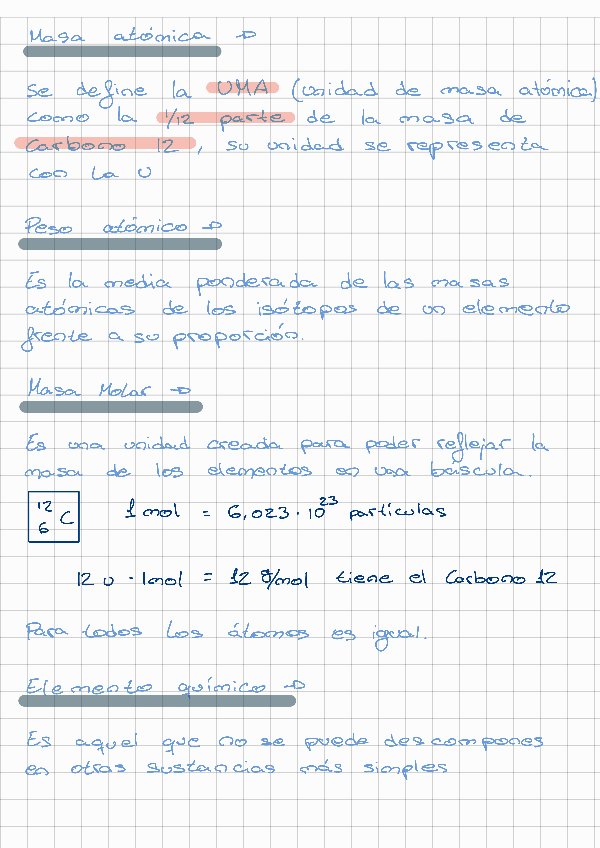 Masa atómica →
Se define la UMA (unidad de masa atómica)
como la 1/12 parte de la masa de
Carbono 12, su unidad se representa
con la u
Peso atómico →
Es la media ponderada de las masas
atómicas de los isótopos de un elemento
frente a su proporción.
Masa Molar →
Es una unidad creada para poder reflejar la
masa de los elementos en una báscula.
¹²₆C 1 mol = 6,023 · 10²³ partículas
12 u · 1mol = 12 g/mol tiene el Carbono 12
Para todos los átomos es igual.
Elemento químico →
Es aquel que no se puede descompones
en otras sustancias más simples